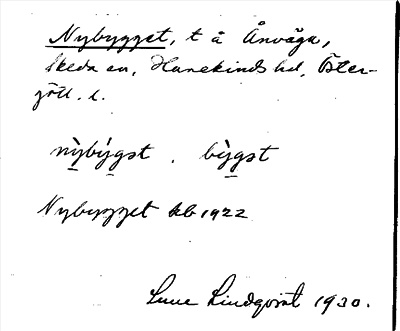 Nybygget, t å Ånväga,
Skeda sn, Hanekinds hd, Öster-
götl. l.
nỳbýgst . bỳgst
Nybygget kb 1922
Sune Lindqvist 1930.